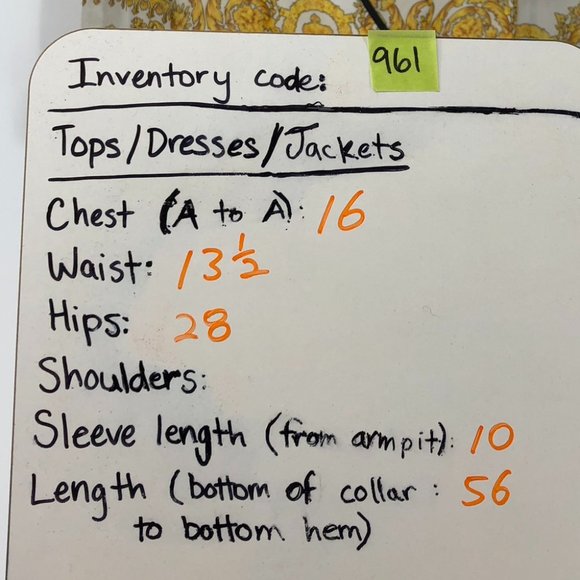 Inventory code: 961
Tops/Dresses/Jackets
Chest (A to A): 16
Waist: 13 1/2
Hips: 28
Shoulders:
Sleeve length (from armpit): 10
Length (bottom of collar : 56
to bottom hem)